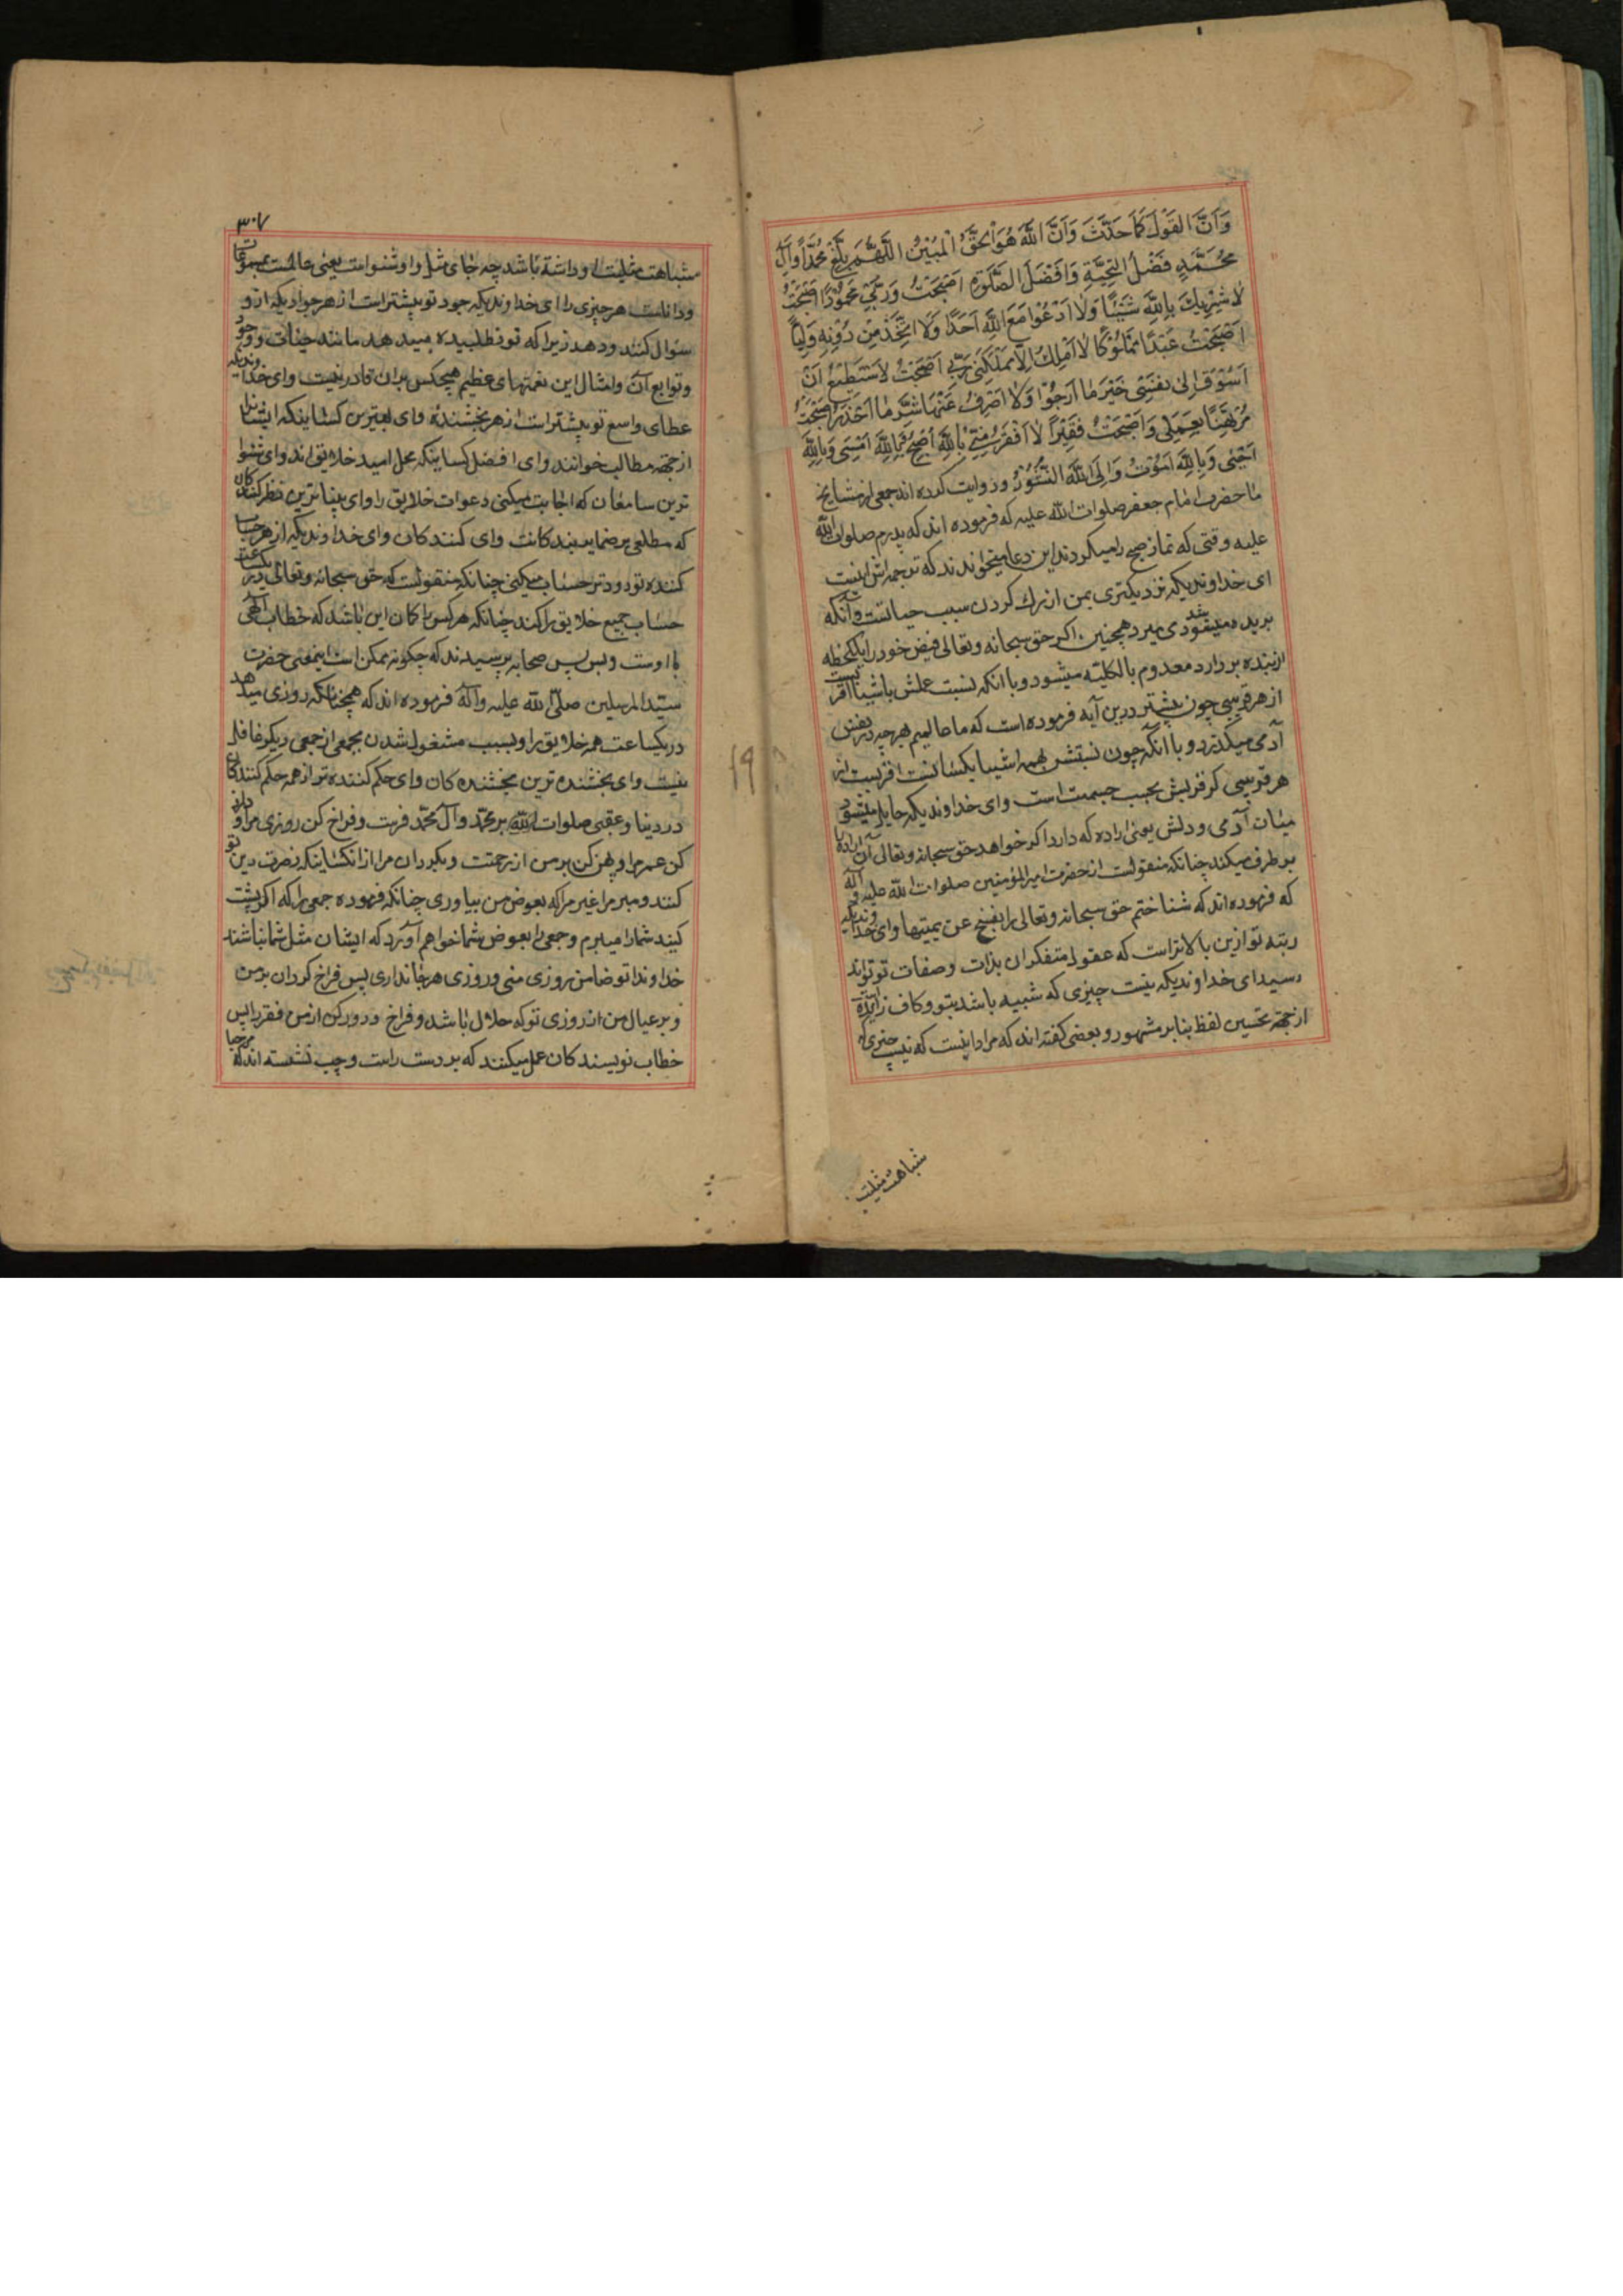 وَاَنَّ القَوْلَ كَمَا حَدَّثَ وَاَنَّ اللَّهَ هُوَ الْحَقُّ الْمُبِيْنُ اللَّهُمَّ بَلِّغْ مُحَمَّدًا وَاٰلَ
مُحَمَّدٍ فَضْلَ التَّحِيَّةِ وَاَفْضَلَ الصَّلٰوةِ اَصْبَحْتُ وَرَبِّي مَحْمُوْدًا اَصْبَحْتُ
لَا اُشْرِكُ بِاللَّهِ شَيْئًا وَلَا اَدْعُوا مَعَ اللَّهِ اَحَدًا وَلَا اَتَّخِذُ مِنْ دُوْنِهٖ وَلِيًّا
اَصْبَحْتُ عَبْدًا مَمْلُوْكًا لَا اَمْلِكُ اِلَّا مَا مَلَّكَنِي رَبِّي اَصْبَحْتُ لَا اَسْتَطِيْعُ اَنْ
اَسُوْقَ اِلٰى نَفْسِي خَيْرَ مَا اَرْجُوْا وَلَا اَصْرِفُ عَنْهَا شَرَّ مَا اَحْذَرُ اَصْبَحْتُ
مُرْتَهِنًا بِعَمَلِي وَاَصْبَحْتُ فَقِيْرًا لَا اَفْقَرَ مِنِّي بِاللَّهِ اُصْبِحُ وَبِاللَّهِ اُمْسِي وَبِاللَّهِ
اَحْيٰى وَبِاللَّهِ اَمُوْتُ وَاِلَى اللَّهِ النُّشُوْرُ و روايت كرده اند جمعى از مشايخ
ما حضرت امام جعفر صلوات الله عليه كه فرموده اند كه پدرم صلوات الله
عليه وقتى كه نماز صبح را ميكردند اين دعا ميخواندند كه ترجمه اش اينست
اى خداونديكه نزديكترى بمن از رك كردن سبب حياتست و آنكه
بريده ميشود مى ميرد همچنين اكر حق سبحانه و تعالى فيض خود را يكلحظه
از بنده بردارد معدوم بالكليه ميشود و با انكه نسبت علمش باشيا اقربست
از هر قريبى چون پيشتر درين آيه فرموده است كه ما عالميم بهر چه در نفس
آدمى ميكذرد و با آنكه چون نسبتش بهمه اشيا يكسانست اقربست از
هر قريبى كه قربش بحسب جسميت است واى خداونديكه حايل ميشود
ميان آدمى و دلش يعنى اراده كه دارد اكر خواهد حق سبحانه و تعالى آن اراده را
بر طرف ميكند چنانكه منقولست از حضرت امير المؤمنين صلوات الله عليه و آله
كه فرموده اند كه شناختم حق سبحانه و تعالى را بفسخ عزيمتها واى خداونديكه
رتبه تو ازين بالاتر است كه عقول متفكران بذات و صفات تو تواند
رسيد اى خداونديكه نيست چيزى كه شبيه باشد بتو و كاف زايده
از جهة تحسين لفظ بنا بر مشهور و بعضى كفته اند كه مراد اينست كه نيست چيزى كه
شباهت مثليت
٣٠٧
مشباهت مثليت او داشته باشد چه جاى مثل و او شنواست يعنى عالمست بمسموعات
و داناست هر چيزى را اى خداونديكه جود تو پيشتر است از هر جواديكه ازو
سؤال كنند و دهد زيرا كه تو نطلبيده ميدهد مانند حيات و وجود
و توابع آن و امثال اين نعمتهاى عظيم هيچكس بران قادر نيست واى خداونديكه
عطاى واسع تو پيشتر است از هر بخشنده واى بهترين كسانيكه ايشانرا
از جهة مطالب خوانند واى افضل كسانيكه محل اميد خلايق اند واى شنوا
ترين سامعان كه اجابت ميكنى دعوات خلايق را واى بيناترين نظر كنندكان
كه مطلعى بر ضماير بندكانت واى كنندكان واى خداونديكه از هر حساب
كننده تو زودتر حساب ميكنى چنانكه منقولست كه حق سبحانه و تعالى در يكساعت
حساب جميع خلايق را كند چنانكه هر كس را كمان اين باشد كه خطاب الهى
با اوست و بس پس صحابه پرسيدند كه چكونه ممكن است اينمعنى حضرت
سيد المرسلين صلى الله عليه و آله فرموده اند كه همچنانكه روزى ميدهد
در يكساعت همه خلايق را و بسبب مشغول شدن بجمعى از جمعى ديكر غافل
نيست واى بخشنده ترين بخشنده كان واى حكم كننده تر از همه حكم كنندكان
در دنيا و عقبى صلوات الله بر محمد و آل محمد فرست و فراخ كن روزى مرا و دراز
كن عمر مرا و پهن كن بر من از رحمتت و بكردان مرا از انكسانيكه نصرت دين تو
كنند و مبر مرا غير مرا كه بعوض من بياورى چنانكه فرموده جمعى را كه اكر پشت
كنيد شما را ميبرم و جمعى را بعوض شما خواهم آورد كه ايشان مثل شما نباشند
خداوندا تو ضامن روزى منى و روزى هر جاندارى پس فراخ كردان بر من
و بر عيال من از روزى تو كه حلال باشد و فراخ و دور كن از من فقر را پس
خطاب نويسندكان عمل ميكنند كه بر دست راست و چپ نشسته اند كه مرحبا